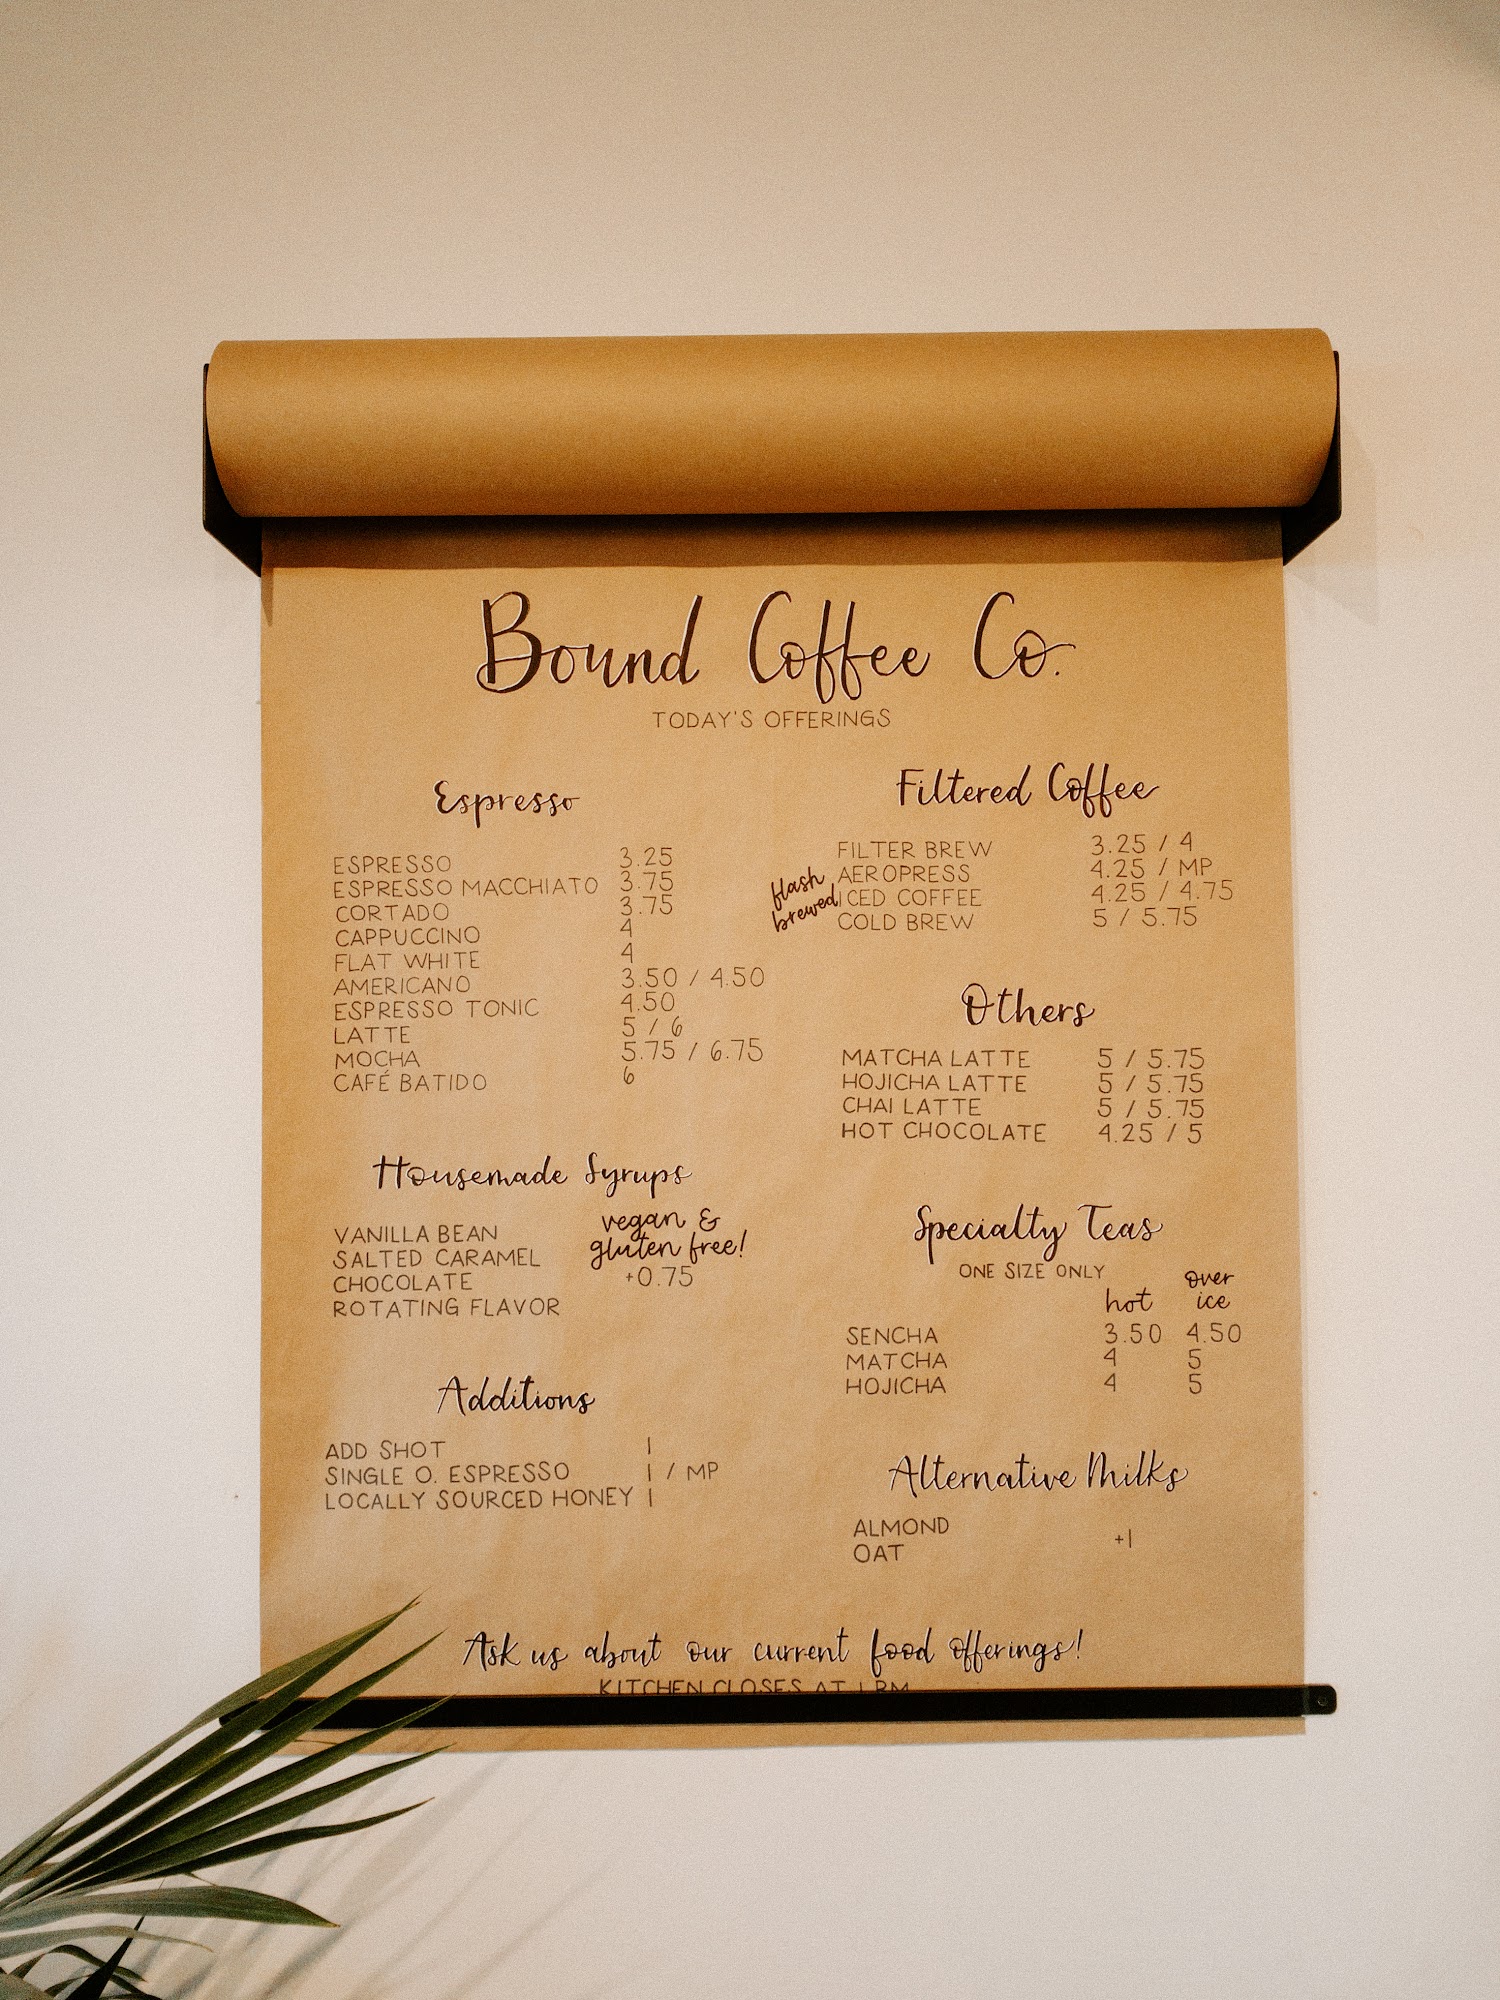 Bound Coffee Co.
TODAY'S OFFERINGS
Espresso
ESPRESSO 3.25
ESPRESSO MACCHIATO 3.75
CORTADO 3.75
CAPPUCCINO 4
FLAT WHITE 4
AMERICANO 3.50 / 4.50
ESPRESSO TONIC 4.50
LATTE 5 / 6
MOCHA 5.75 / 6.75
CAFÉ BATIDO 6
Housemade Syrups
VANILLA BEAN
SALTED CARAMEL
CHOCOLATE
ROTATING FLAVOR
vegan &
gluten free!
+0.75
Additions
ADD SHOT 1
SINGLE O. ESPRESSO 1 / MP
LOCALLY SOURCED HONEY 1
Filtered Coffee
FILTER BREW 3.25 / 4
AEROPRESS 4.25 / MP
flash
brewed
ICED COFFEE 4.25 / 4.75
COLD BREW 5 / 5.75
Others
MATCHA LATTE 5 / 5.75
HOJICHA LATTE 5 / 5.75
CHAI LATTE 5 / 5.75
HOT CHOCOLATE 4.25 / 5
Specialty Teas
ONE SIZE ONLY
hot over
ice
SENCHA 3.50 4.50
MATCHA 4 5
HOJICHA 4 5
Alternative Milks
ALMOND
OAT
+1
Ask us about our current food offerings!
KITCHEN CLOSES AT 1 PM